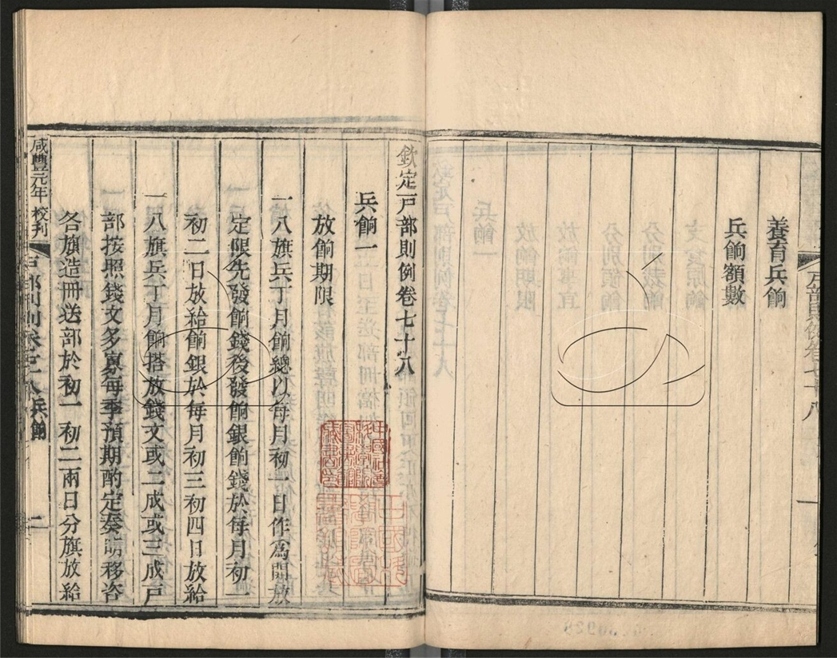 養育兵餉
兵餉額數
欽定戶部則例卷七十八
兵餉一
放餉期限
一八旗兵丁月餉總以每月初一日作為開放
定限先發餉錢後發餉銀餉錢於每月初一
初二日放給餉銀於每月初三初四日放給
一八旗兵丁月餉搭放錢文或二成或三成戶
部按照錢文多寡每季預期酌定奏明移咨
各旗造冊送部於初一初二兩日分旗放給
咸豐元年校刊
戶部則例卷七十八 兵餉